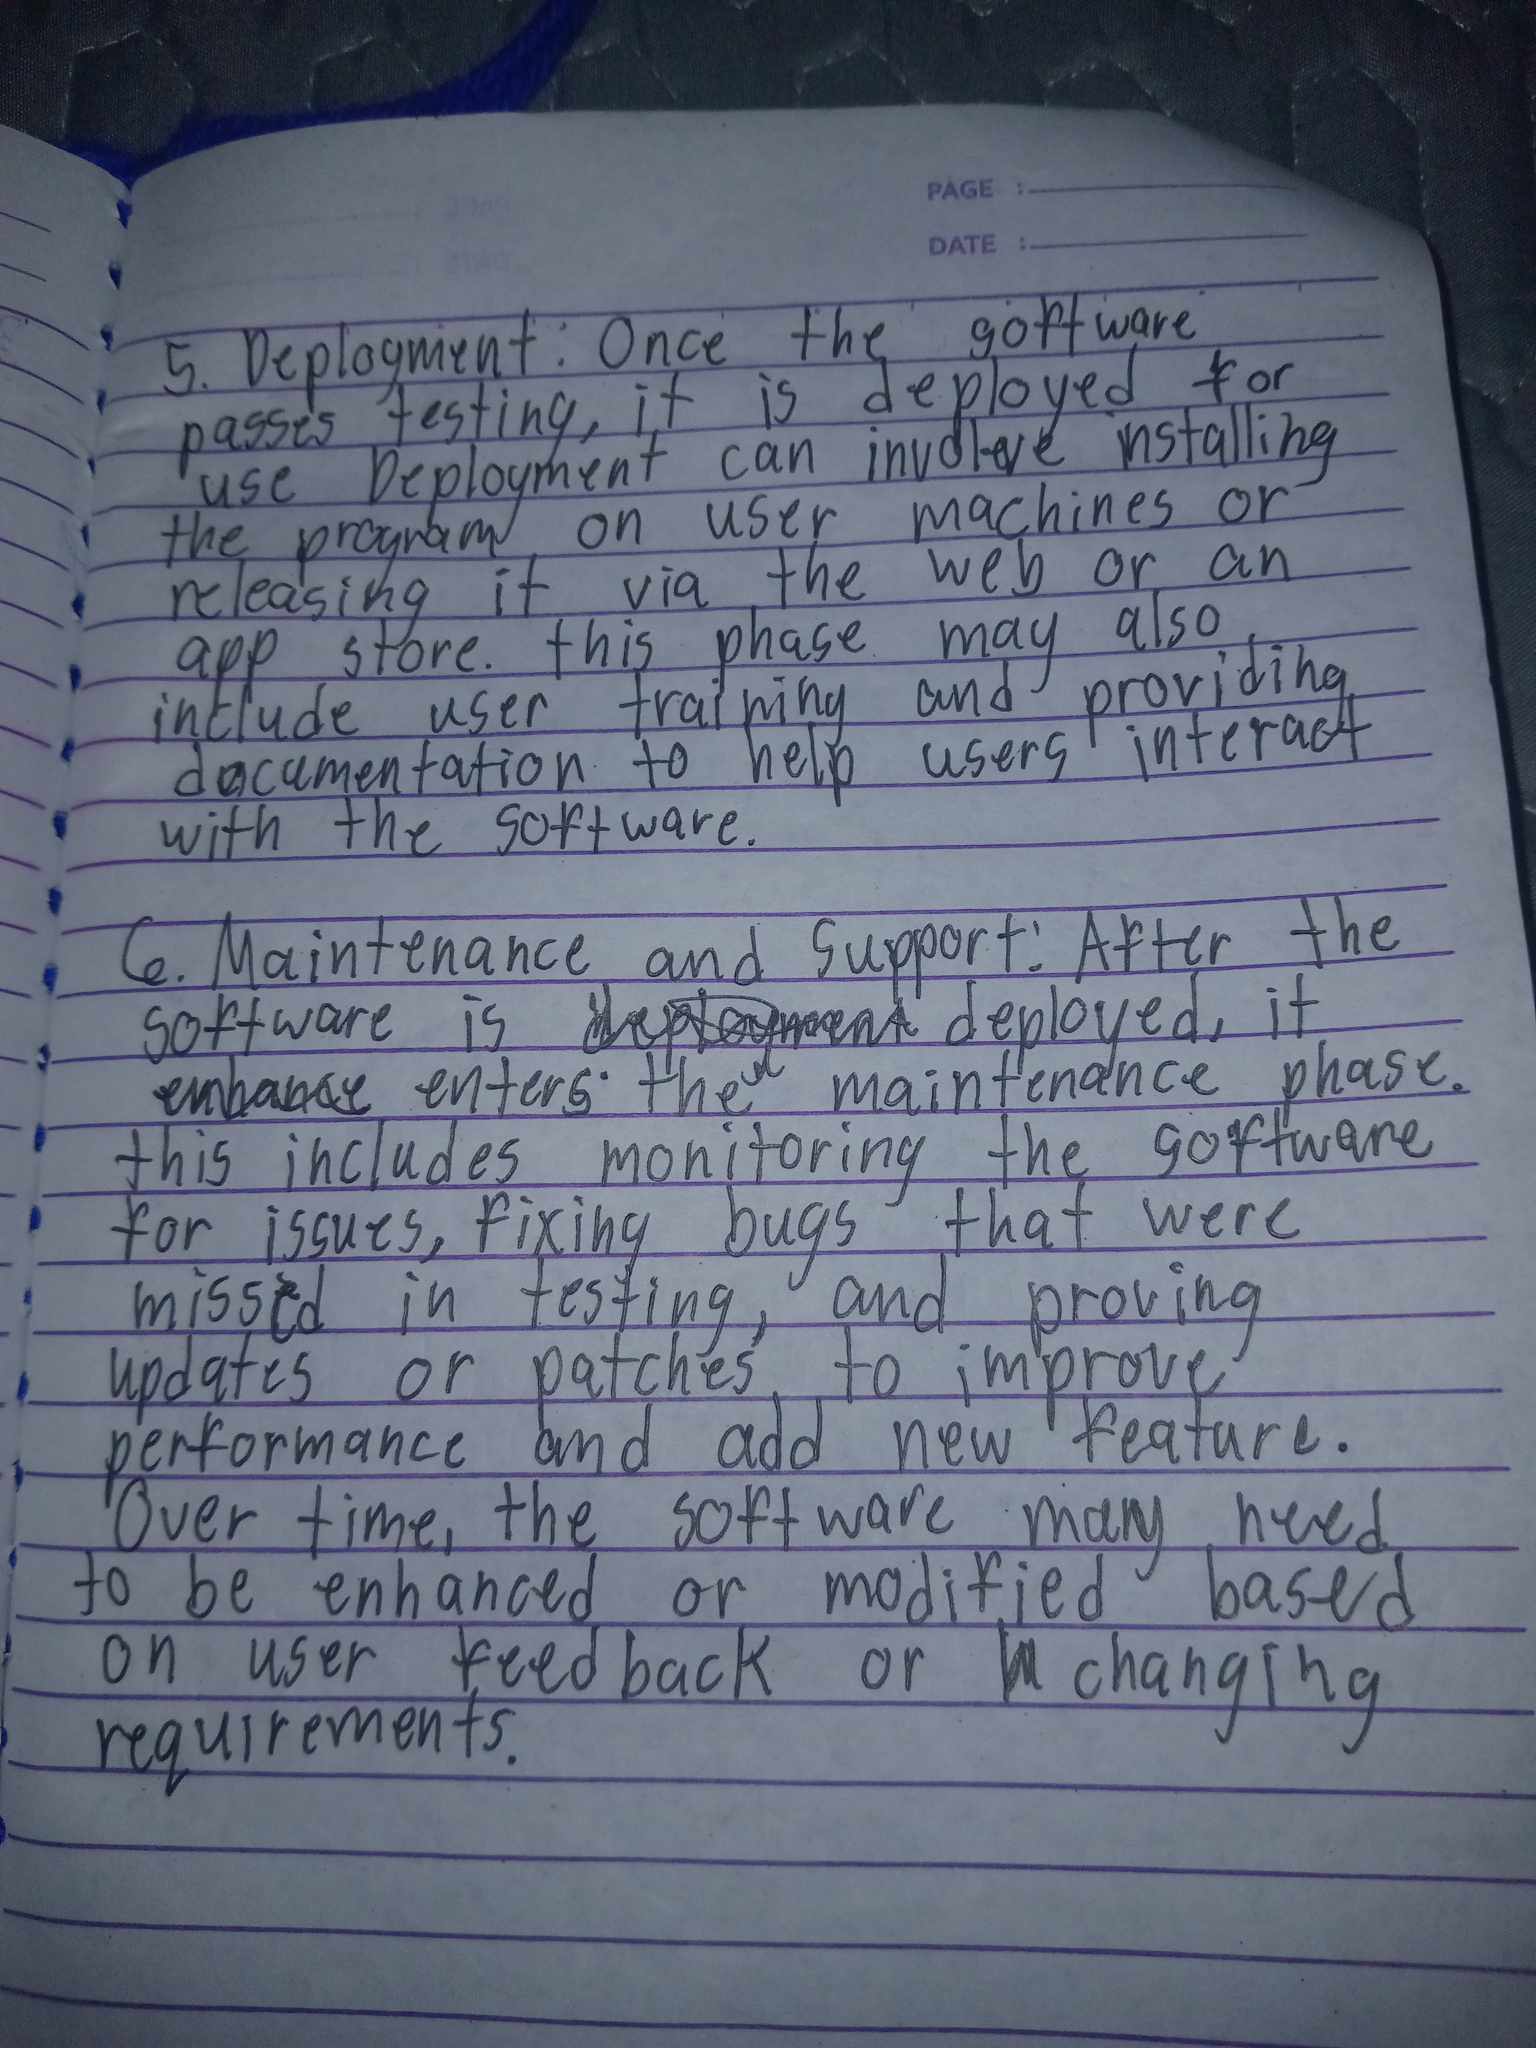 PAGE :
DATE :
5. Deployment: Once the software
passes testing, it is deployed for
use Deployment can involve installing
the program on user machines or
releasing it via the web or an
app store. this phase may also
include user training and providing
documentation to help users interact
with the software.
6. Maintenance and Support: After the
software is deployment deployed, it
enhance enters the maintenance phase.
this includes monitoring the software
for issues, fixing bugs that were
missed in testing, and proving
updates or patches to improve
performance and add new feature.
Over time, the software many need
to be enhanced or modified based
on user feedback or changing
requirements.